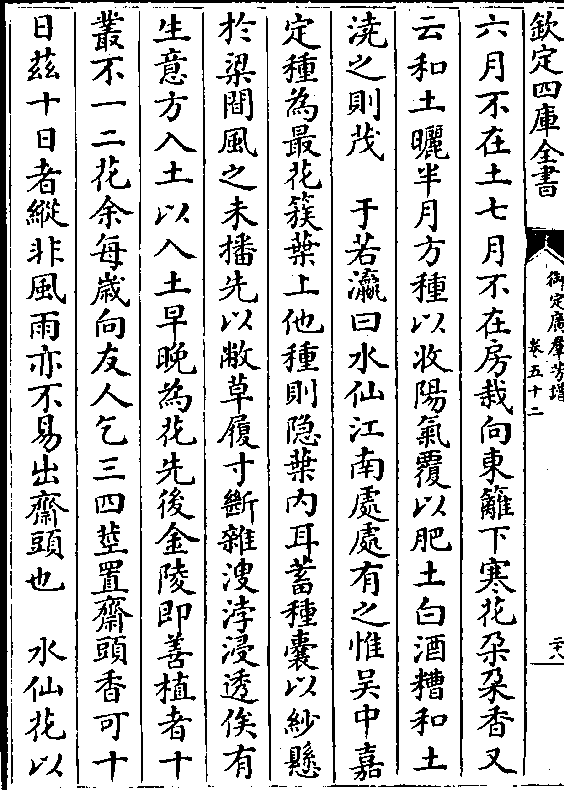 欽定四庫全書
御定廣羣芳譜
卷五十二
二十八
六月不在土七月不在房栽向東籬下寒花朶朶香又
云和土曬半月方種以收陽氣覆以肥土白酒糟和土
澆之則茂　于若瀛曰水仙江南處處有之惟吴中嘉
定種為最花簇葉上他種則隐葉内耳蓄種囊以紗懸
於梁間風之未播先以敝草履寸斷雜溲浡浸透俟有
生意方入土以入土早晚為花先後金陵即善植者十
叢不一二花余每歲向友人乞三四莖置齋頭香可十
日兹十日者縱非風雨亦不易出齋頭也　水仙花以